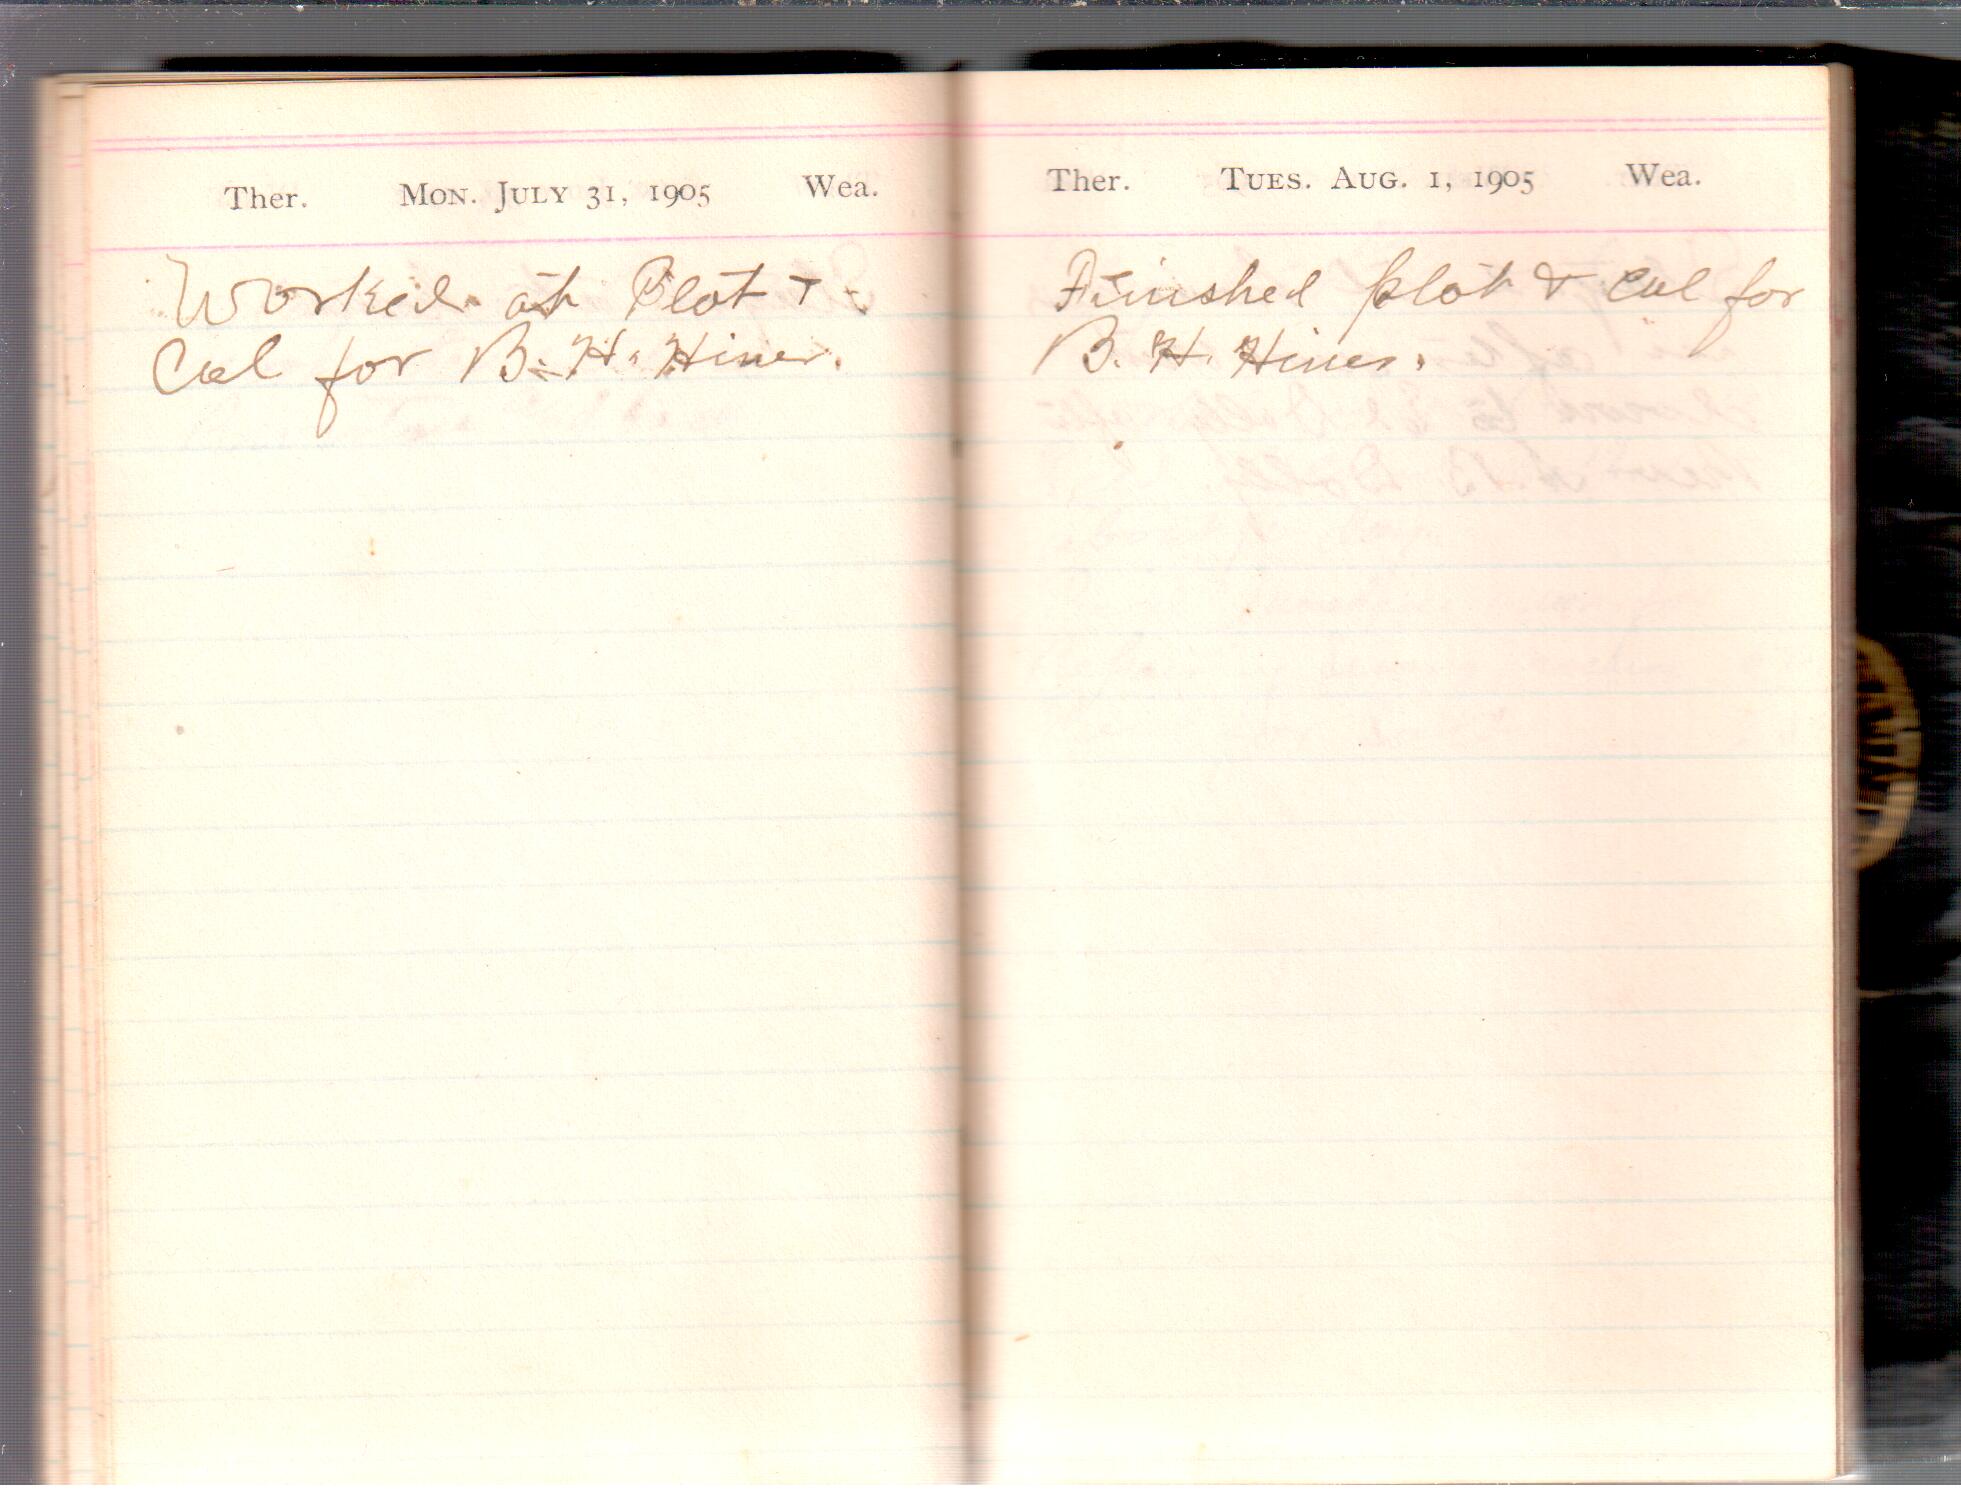 Ther. Mon. July 31, 1905 Wea.
Worked at Plot +
Cal for B. H. Hiner.
Ther. Tues. Aug. 1, 1905 Wea.
Finished plot & Cal for
B. H. Hiner.